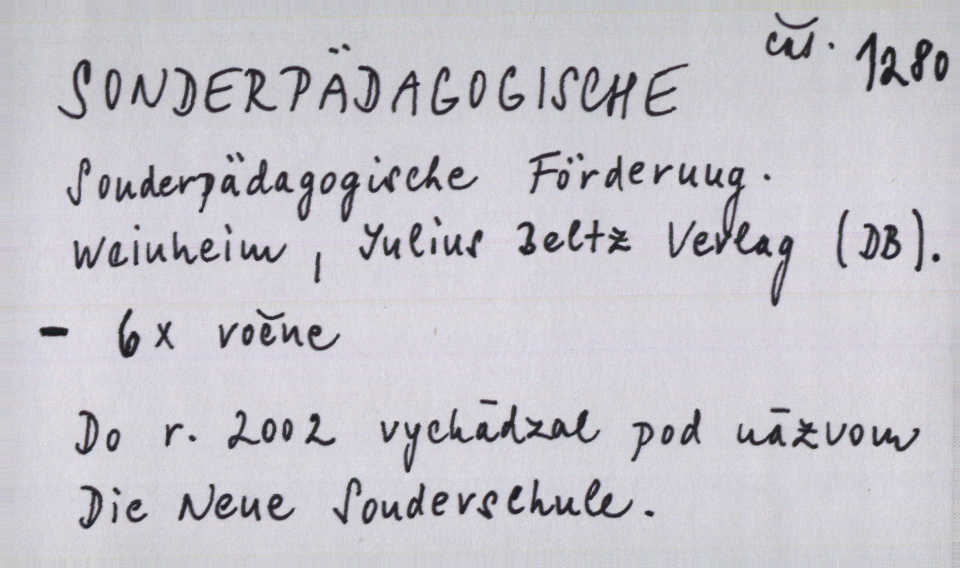 čas. 1280
SONDERPÄDAGOGISCHE
Sonderpädagogische Förderung.
Weinheim, Julius Beltz Verlag (DB).
- 6x ročne
Do r. 2002 vychádzal pod názvom
Die Neue Sonderschule.